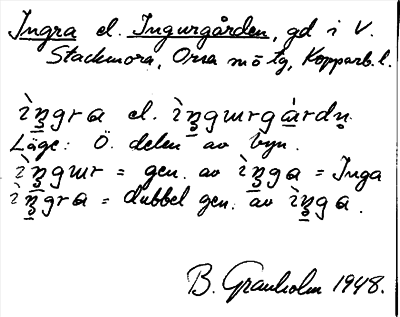 Ingra el. Ingurgården, gd i V.
Stackmora, Orsa sn o tg, Kopparb. l.
ìn̠gra el. ìn̠gɯrgá̠rdṇ.
Läge: Ö. delen av byn.
ìn̠gɯr = gen. av ìn̠ga = Inga
ìn̠gra = dubbel gen. av ìn̠ga.
B. Granholm 1948.